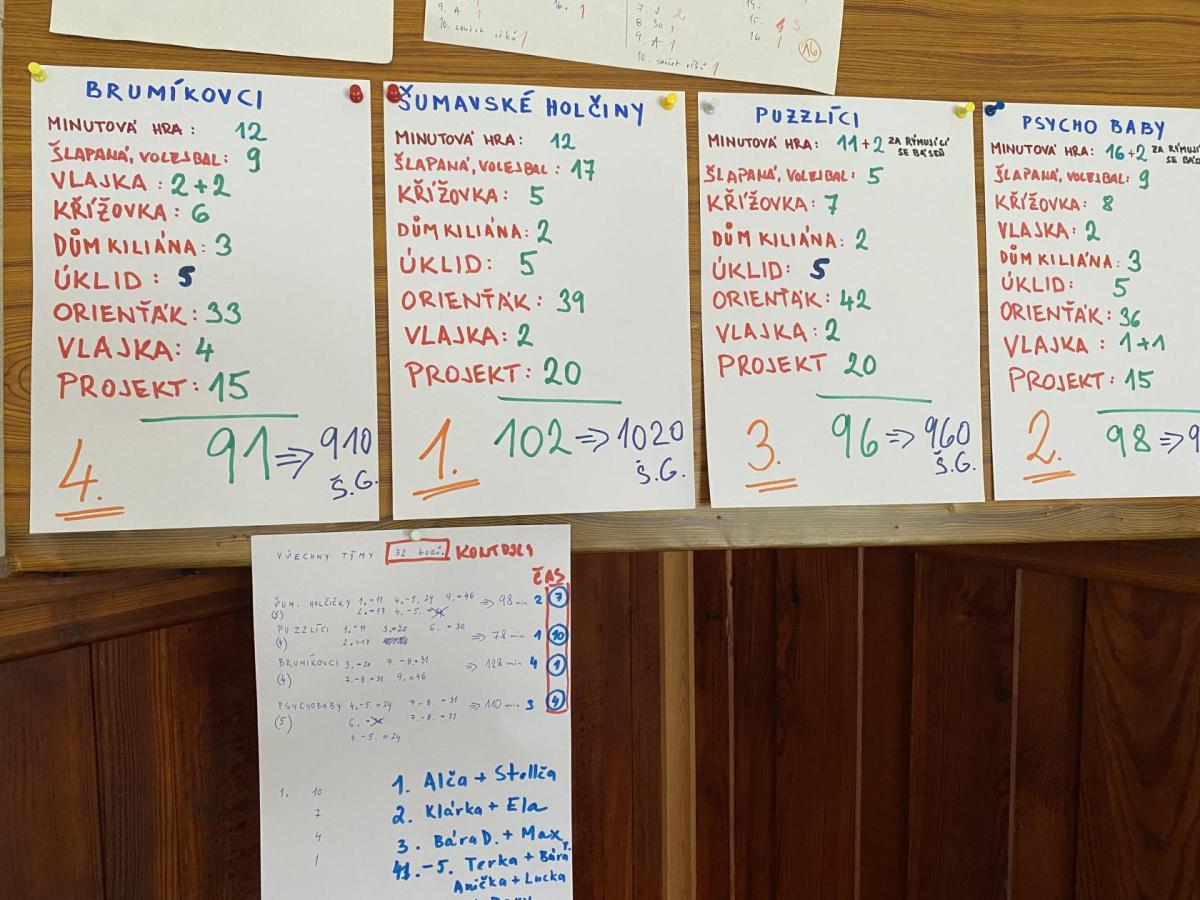 9. A 1
16. 1
7. 2 2
8. 30 1
9. A 1
15. 3
16. 1
16
BRUMÍKOVCI
MINUTOVÁ HRA: 12
ŠLAPANÁ, VOLEJBAL: 9
VLAJKA: 2+2
KŘÍŽOVKA: 6
DŮM KILIÁNA: 3
ÚKLID: 5
ORIENŤÁK: 33
VLAJKA: 4
PROJEKT: 15
91 ⇒ 910
Š.G.
4.
ŠUMAVSKÉ HOLČINY
MINUTOVÁ HRA: 12
ŠLAPANÁ, VOLEJBAL: 17
KŘÍŽOVKA: 5
DŮM KILIÁNA: 2
ÚKLID: 5
ORIENŤÁK: 39
VLAJKA: 2
PROJEKT: 20
1. 102 ⇒ 1020
Š.G.
PUZZLÍCI
MINUTOVÁ HRA: 11+2 ZA RÝMUJÍCÍ
SE BÁSEŇ
ŠLAPANÁ, VOLEJBAL: 5
KŘÍŽOVKA: 7
DŮM KILIÁNA: 2
ÚKLID: 5
ORIENŤÁK: 42
VLAJKA: 2
PROJEKT 20
3. 96 ⇒ 960
Š.G.
PSYCHO BABY
MINUTOVÁ HRA: 16+2 ZA RÝMUJ
SE BÁS
ŠLAPANÁ, VOLEJBAL: 9
KŘÍŽOVKA: 8
VLAJKA: 2
DŮM KILIÁNA: 3
ÚKLID: 5
ORIENŤÁK: 36
VLAJKA: 1+1
PROJEKT: 15
2. 98 ⇒ 9
VŠECHNY TÝMY 32 bodů. KONTROLY
ČAS
ŠUM. HOLČIČKY 1.=11 4.-5. 24 9.=46 ⇒ 98 min 2 7
(5) 2.=17 4.-5.
PUZZLÍCI 1.=11 3.=20 6.=30 ⇒ 78 min 1 10
(4) 2.=17
BRUMÍKOVCI 3.=20 7.-8.=31 ⇒ 128 min 4 1
(4) 7.-8.=31 9.=46
PSYCHOBABY 4.-5.=24 7.-8.=31 ⇒ 110 min 3 4
(5) 6.= 7.-8.=31
4.-5.=24
1. 10
7
4
1
1. Alča + Stellča
2. Klárka + Ela
3. Bára D. + Max
4.-5. Terka + Bára P.
Anička + Lucka